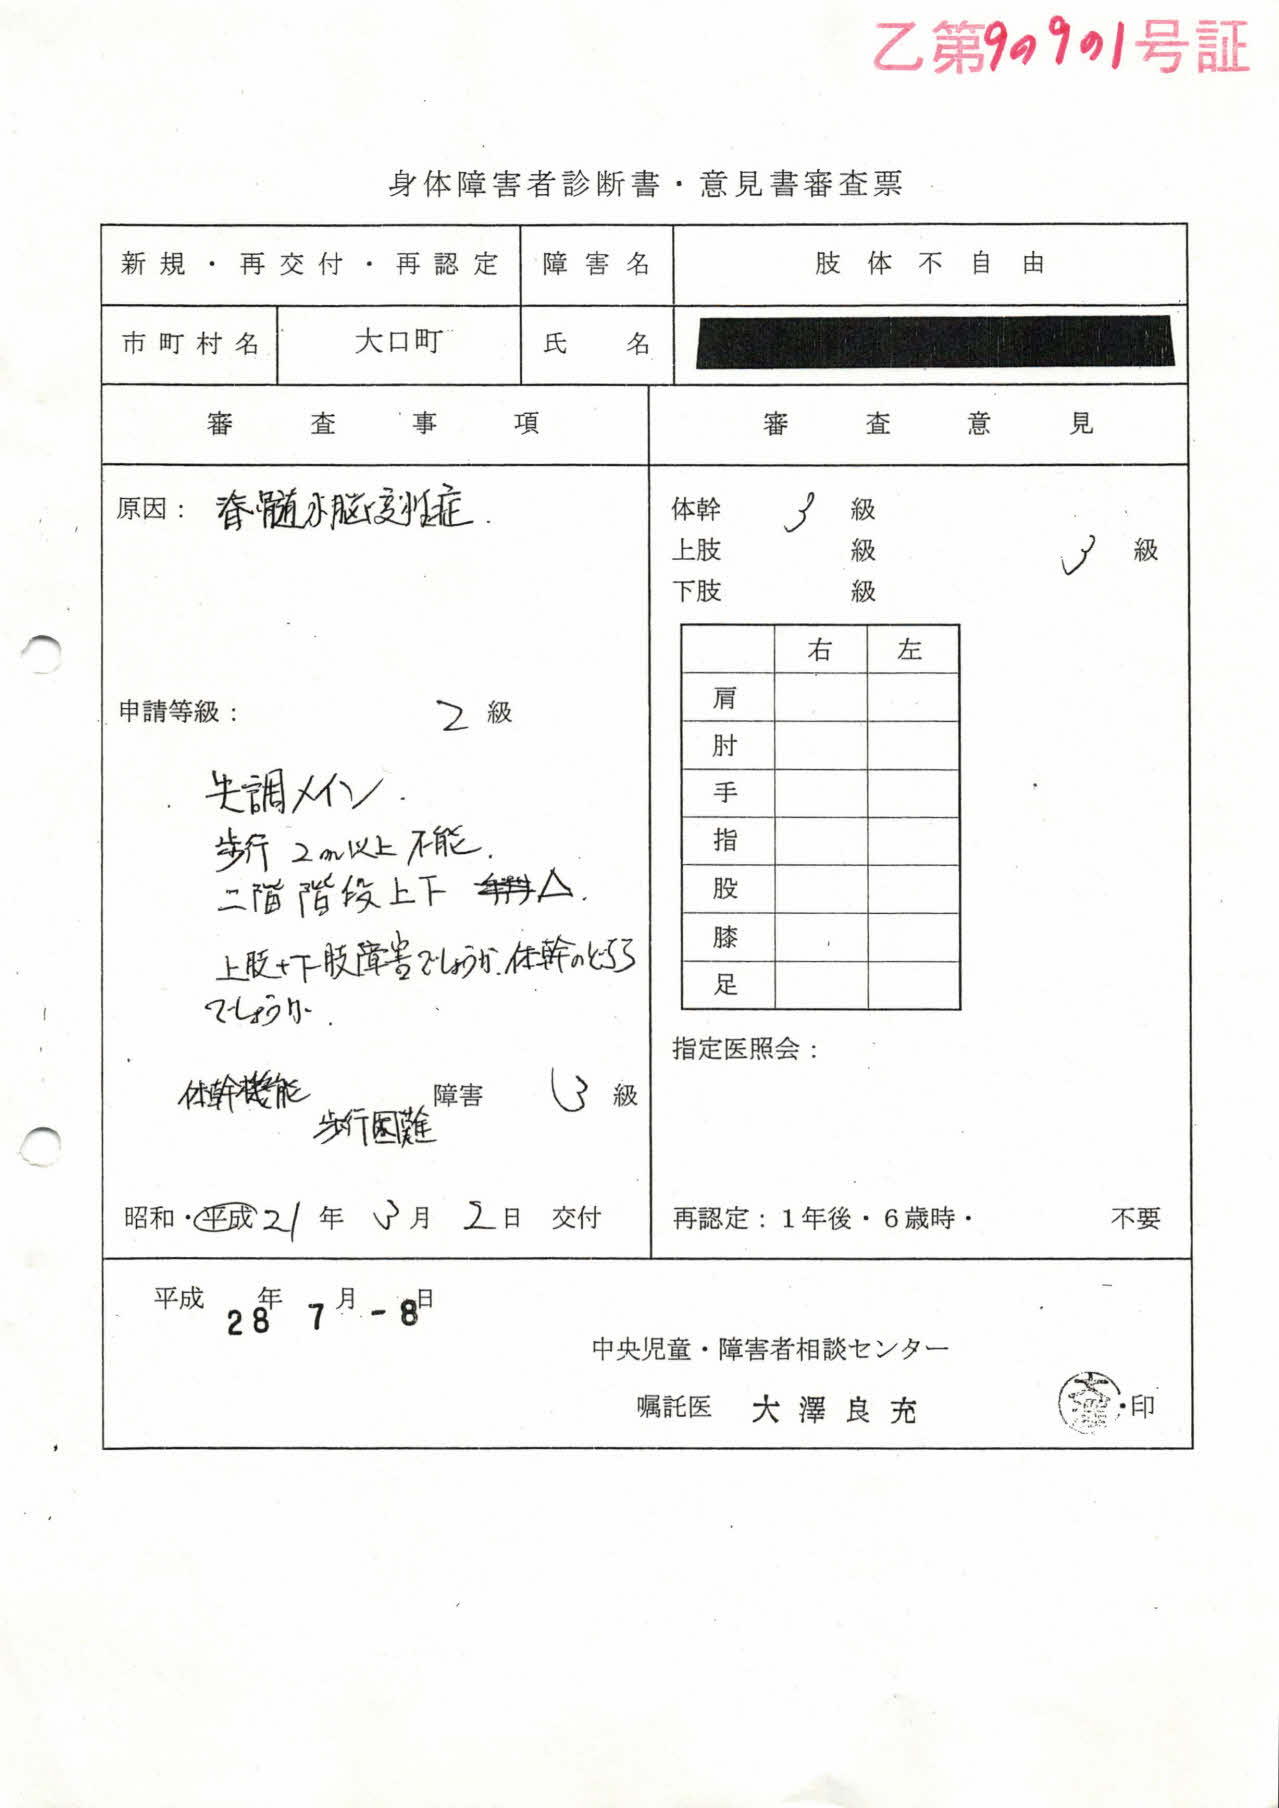 乙第9の9の1号証
身体障害者診断書・意見書審査票
新規・再交付・再認定 障害名 肢体不自由
市町村名 大口町 氏名
審査事項 審査意見
原因: 脊髄小脳変性症.
体幹 3 級
上肢 級 3 級
下肢 級
右 左
肩
肘
手
指
股
膝
足
申請等級: 2 級
失調メイン.
歩行 2m以上 不能.
二階階段上下 △.
上肢+下肢障害でしょうか.体幹のどちら
でしょうか.
体幹機能
歩行困難 障害 3 級
昭和・平成 21 年 3 月 2 日 交付
指定医照会:
再認定:1年後・6歳時・ 不要
平成 28年 7月 -8日
中央児童・障害者相談センター
嘱託医 大澤良充 大澤 印